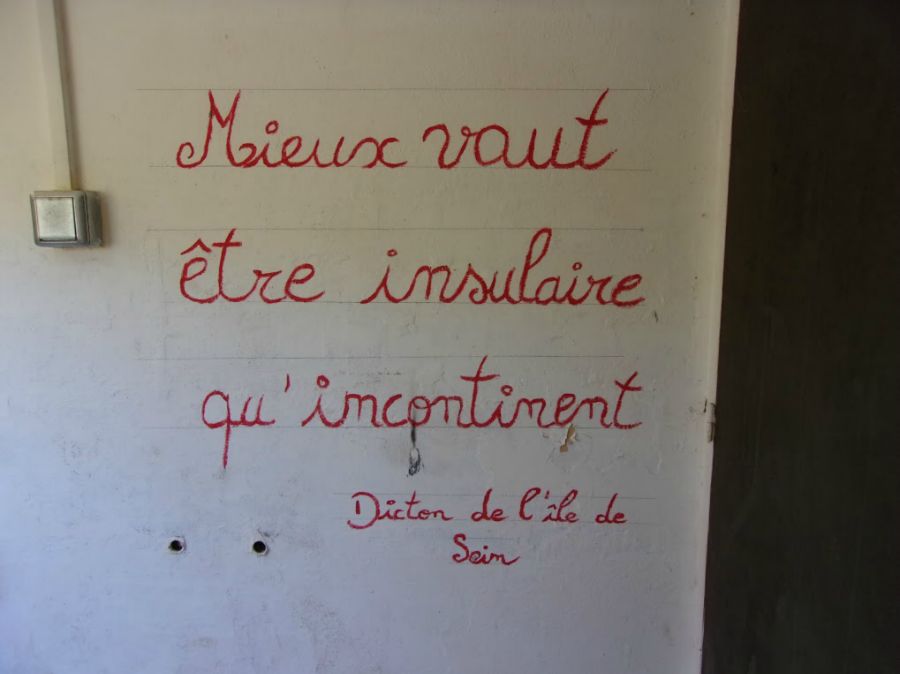 Mieux vaut
être insulaire
qu'incontinent
Dicton de l'île de
Sein